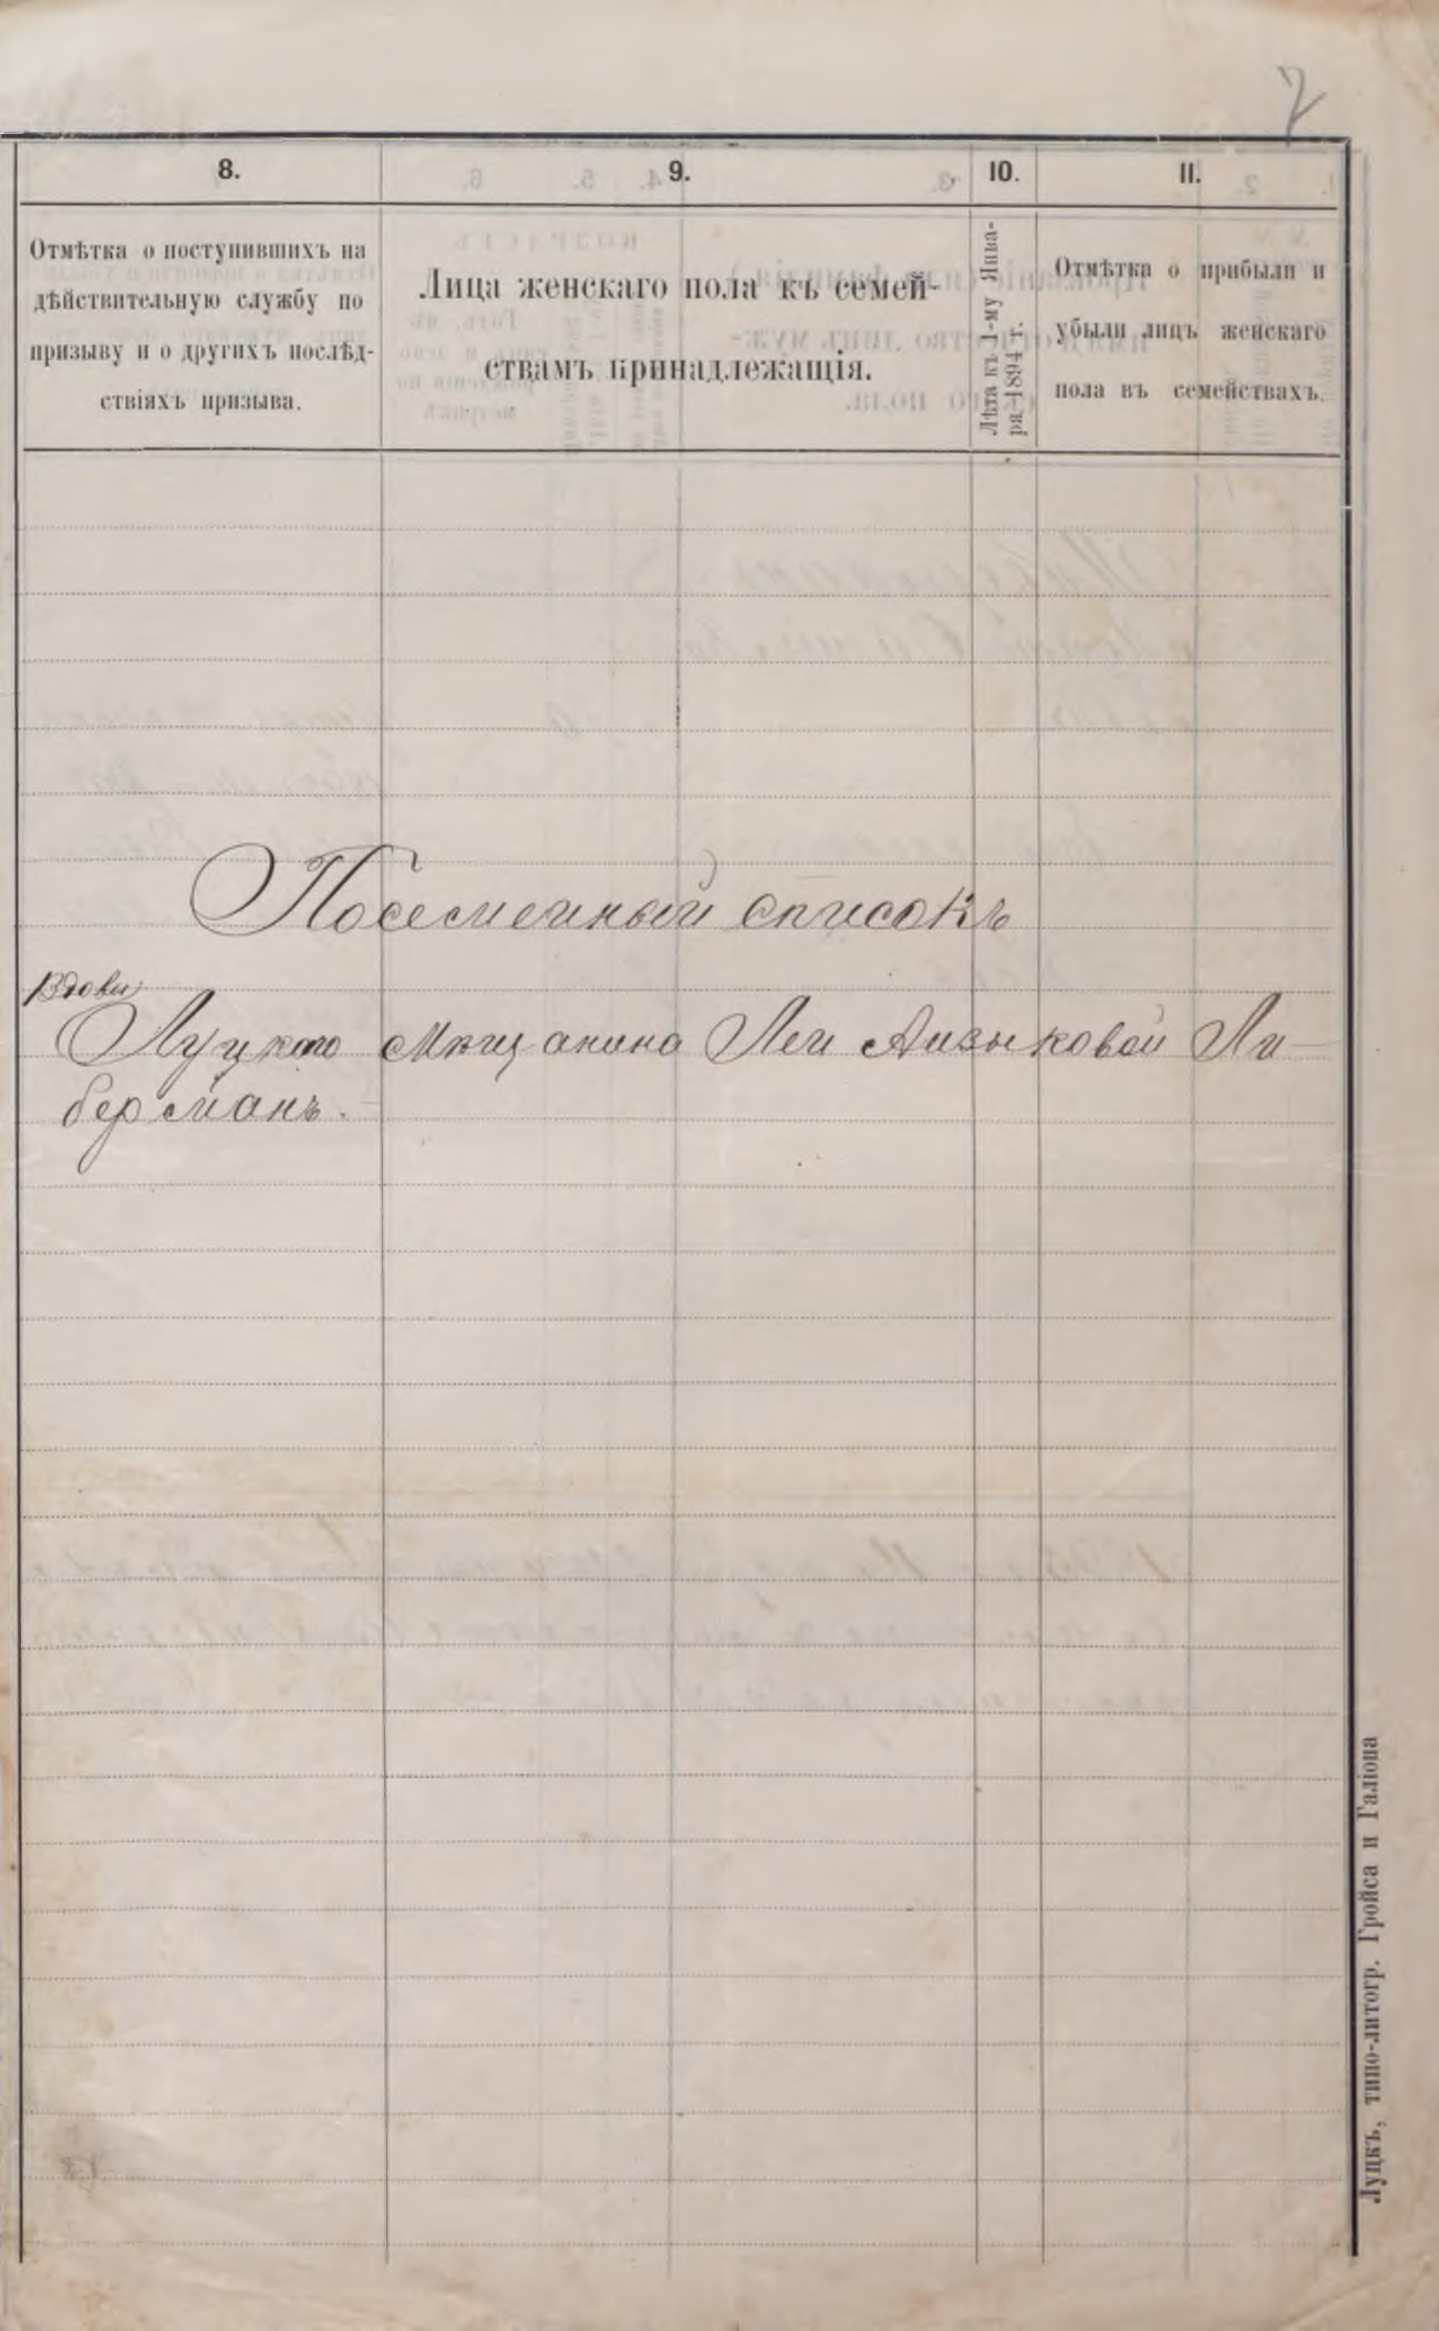 7
8. 9. 10. 11.
Отмѣтка о поступившихъ на
дѣйствительную службу по
призыву и о другихъ послѣд-
ствіяхъ призыва.
Лица женскаго пола къ семей-
ствамъ принадлежащія.
Лѣта къ 1-му Янва-
ря 1894 г.
Отмѣтка о прибыли и
убыли лицъ женскаго
пола въ семействахъ.
Посемейный списокъ
Вдовы
Луцкого Мѣщанина Леи Айзыковой Ли-
берманъ.
Луцкъ, типо-литогр. Гройса и Галіона